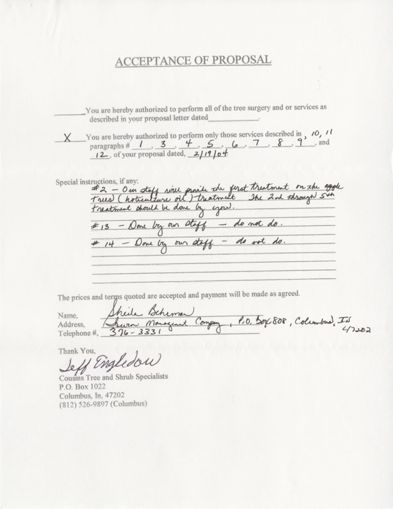 ACCEPTANCE OF PROPOSAL
You are hereby authorized to perform all of the tree surgery and or services as
described in your proposal letter dated
X You are hereby authorized to perform only those services described in , 10, 11
paragraphs # 1 , 3 , 4 , 5 , 6 , 7 , 8 , 9 , and
12 , of your proposal dated, 2/19/04
Special instructions, if any:
#2 - Our staff will provide the first treatment on the apple
Trees (horticulture oil) treatment The 2nd through 5th
treatment should be done by you.
#13 - Done by our staff - do not do.
#14 - Done by our staff - do not do.
The prices and terms quoted are accepted and payment will be made as agreed.
Name, Sheila
Address, Management Company, P.O. Box 808, Columbus, IN
47202
Telephone #, 376-3331
Thank You,
Jeff Engledow
Cousins Tree and Shrub Specialists
P.O. Box 1022
Columbus, In, 47202
(812) 526-9897 (Columbus)